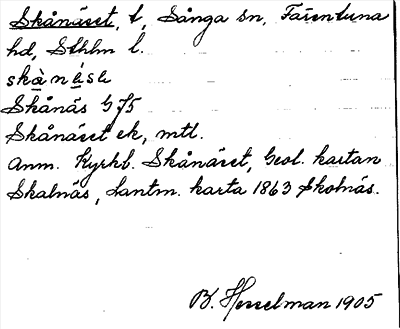 Skånäset, t, Sånga sn, Färentuna
hd, Sthlm l.
skànése
Skånäs G 75
Skånäset ek, mtl.
Anm. Kyrkb. Skånäset, Geol. kartan
Skalnäs, Lantm. karta 1863 Skolnäs.
B. Hesselman 1905